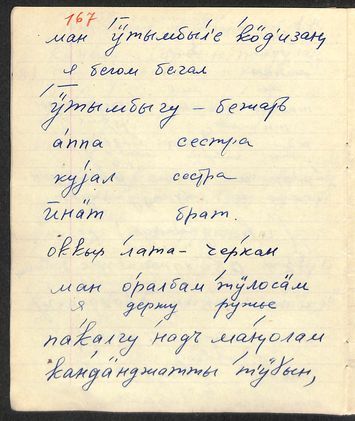 167
ман ӱ̄тымбыл'е кӧд'изаӊ
я бегом бегал
ӱ̄тымбыгу – бежать
а́ппа сестра
куjал сестра
й̄нӓт брат.
оккыр лата – черкан
ман о́ралбам тӱлосӓм
я держу ружье
па́калгу надъ маӊолам
кандӓнджатты тӱɣын,